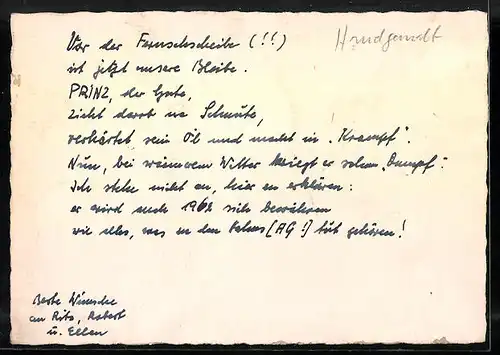 Vor der Fernsehscheibe (!!)
Handgemalt
ist jetzt unsere Bleibe.
PRINZ, der Gute,
zieht darob ne Schnute,
verhärtet sein Öl und macht in „Krampf“.
Nun, bei wärmerem Wetter kriegt er schon „Dampf“.
Ich stehe nicht an, hier zu erklären:
er wird auch 1962 sich bewähren
wie alles, was zu den (AG!) tut gehören!
Beste Wünsche
an Rita, Robert
u. Ellen